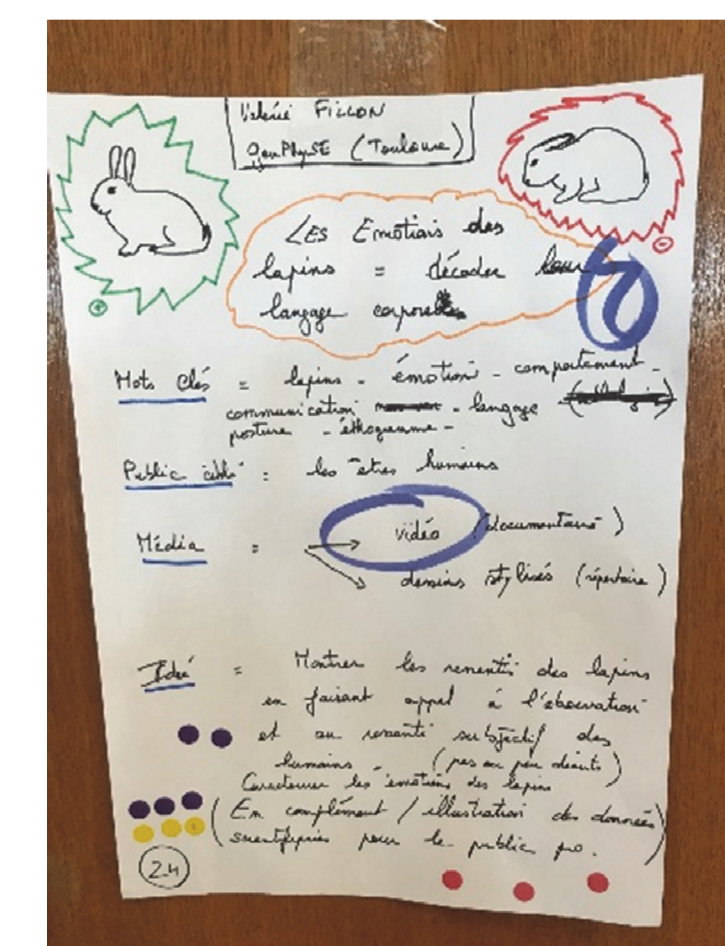 Valérie FILLON
GenPhySE (Toulouse)
LES Emotions des
lapins = décoder leur
langage corporel
8
+
-
Mots Clés = lapins - émotion - comportement -
communication - langage
posture - éthogramme -
Public ciblé = les êtres humains
Média = vidéo (documentaire)
dessins stylisés (répertoire)
Idée = Montrer les ressentis des lapins
en faisant appel à l'observation
et au ressenti subjectif des
humains. (pas ou peu décrits)
Caractériser les émotions des lapins
(En complément / illustration des données
scientifiques pour le public pro.)
24